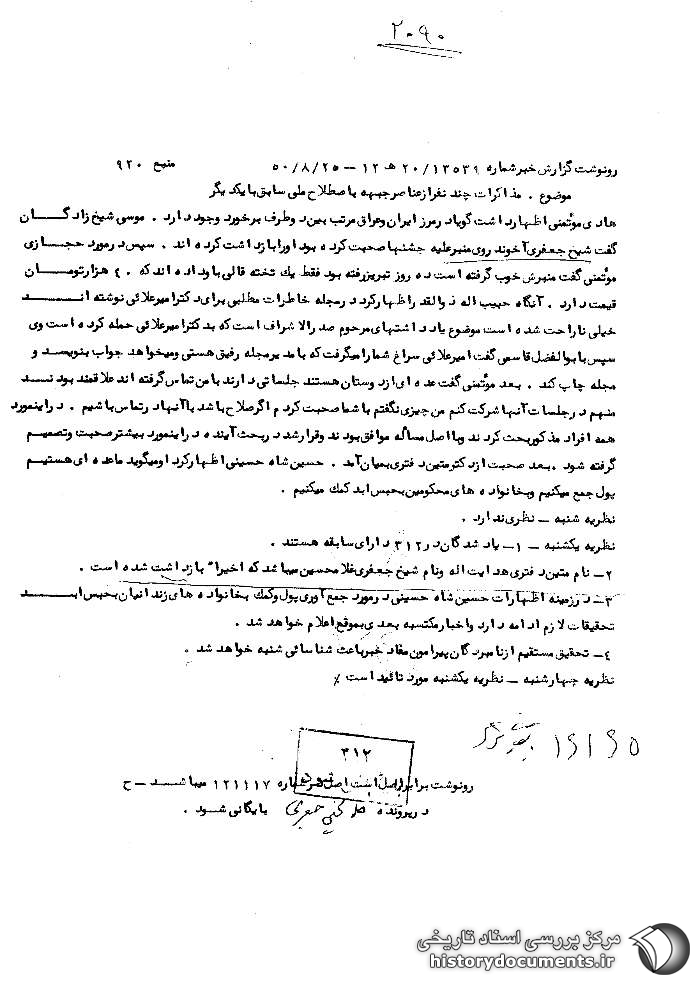 ۲۰۹۰
رونوشت گزارش خبر شماره ۲۰/۱۳۵۳۹ هـ ۱۲ -- ۵۰/۸/۲۵ منبع ۹۲۰
موضوع . مذاکرات چند نفر از عناصر جبهه باصطلاح ملی سابق با یکدیگر
هادی مؤتمنی اظهار داشت گویا در مرز ایران و عراق مرتب بین دو طرف برخورد وجود دارد . موسی شیخ زادگان
گفت شیخ جعفری آخوند روی منبر علیه جشنها صحبت کرده بود او را بازداشت کرده اند . سپس در مورد حجازی
مؤتمنی گفت منبرش خوب گرفته است ده روز تبریز رفته بود فقط یک تخته قالی باو داده اند که ۴۰ هزار تومان
قیمت دارد . آنگاه حبیب اله ذوالقدر اظهار کرد در مجله خاطرات مطلبی برای دکتر امیرعلائی نوشته انـد
خیلی ناراحت شده است موضوع یادداشتهای مرحوم صدرالاشراف است که به دکتر امیرعلائی حمله کرده است وی
سپس با بوالفضل قاسمی گفت امیرعلائی سراغ شما را میگرفت که با مدیر مجله رفیق هستی و میخواهد جواب بنویسد و
مجله چاپ کند . بعد مؤتمنی گفت عده ای از دوستان هستند جلساتی دارند با من تماس گرفته اند علاقمند بودند
منهم در جلسات آنها شرکت کنم من چیزی نگفتم با شما صحبت کردم اگر صلاح باشد با آنها در تماس باشیم . در اینمورد
همه افراد مذکور بحث کردند و با اصل مسأله موافق بودند و قرار شد در بحث آینده در اینمورد بیشتر صحبت و تصمیم
گرفته شود . بعد صحبت از دکتر متین دفتری بمیان آمد . حسین شاه حسینی اظهار کرد او میگوید ما عده ای هستیم
پول جمع میکنیم و بخانواده های محکومین بحبس ابد کمک میکنیم .
نظریه شنبه – نظری ندارد .
نظریه یکشنبه – ۱- یاد شدگان در ۳۱۲ دارای سابقه هستند .
۲- نام متین دفتری هدایت اله و نام شیخ جعفری غلامحسین میباشد که اخیرا" بازداشت شده است .
۳- در زمینه اظهارات حسین شاه حسینی در مورد جمع آوری پول و کمک بخانواده های زندانیان بحبس ابـد
تحقیقات لازم ادامه دارد و اخبار مکتسبه بعدی بموقع اعلام خواهد شد .
۴- تحقیق مستقیم از نامبردگان پیرامون مفاد خبر باعث شناسائی شنبه خواهد شد .
نظریه چهارشنبه – نظریه یکشنبه مورد تائید است ٪
۳۱۲
رونوشت برابر اصل است اصل در شماره ۱۲۱۱۱۷ میباشـد – ح
در پرونده جعفری بایگانی شود .
مرکز بررسی اسناد تاریخی
historydocuments.ir